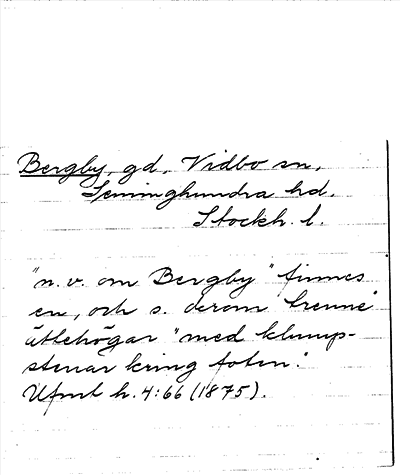 Bergby, gd, Vidbo sn,
Seminghundra hd.
Stockh. l.
"n. v. om Bergby" finnes
en, och s. derom "trenne
ättehögar "med klump-
stenar kring foten."
Ufmt h. 4:66 (1875).